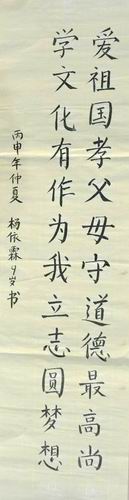 爱祖国孝父母守道德最高尚
学文化有作为我立志圆梦想
丙申年仲夏 杨依霖9岁书